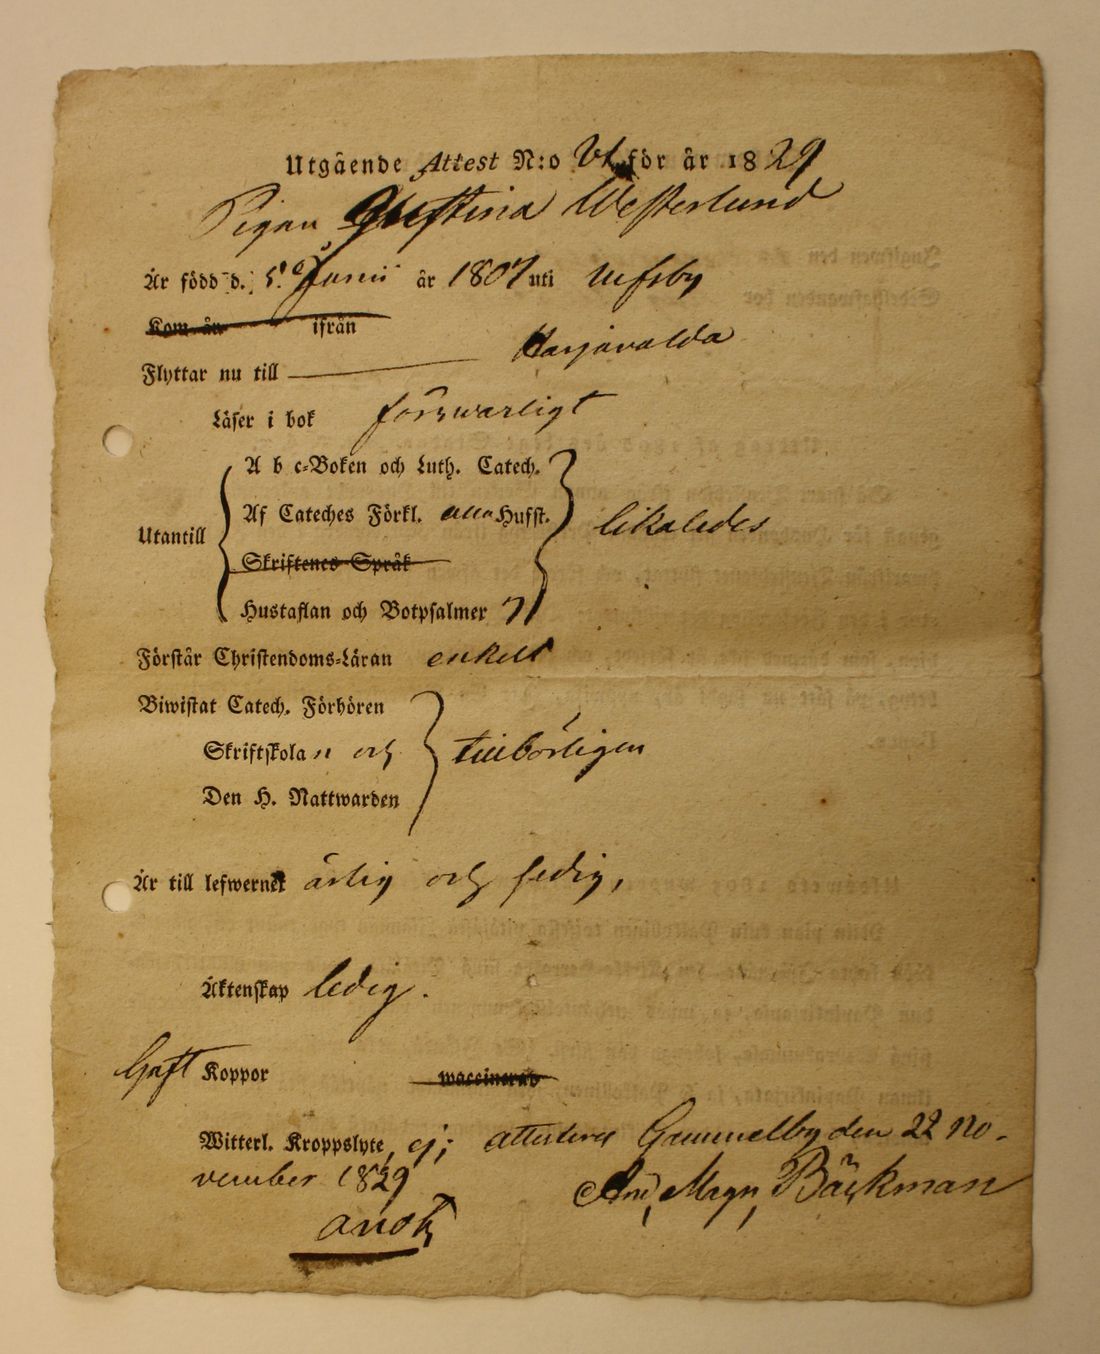 Utgående Attest N:o för år 1829
Pigan Gustina Westerlund
Är född d. 5 Junii år 1807 uti Ulfsby
Kom år ifrån
Harjavalda
Flyttar nu till
Läser i bok försvarligt
A b c-Boken och Luth. Catech.
Af Cateches Förkl. Husst.
Utantill likaledes
Skriftenes Språk
Hustaflan och Botpsalmer
Förstår Christendoms-Läran enkelt
Biwistat Catech. Förhören
Skriftskolan och tillbörligen
Den H. Nattwarden
Är till lefwernet ärlig och sedig,
Äktenskap ledig.
Haft Koppor waccinerad
Witterl. Kroppslyte, ej; attesterar Gammelby den 22 No-
vember 1829 And, Magn, Bäckman